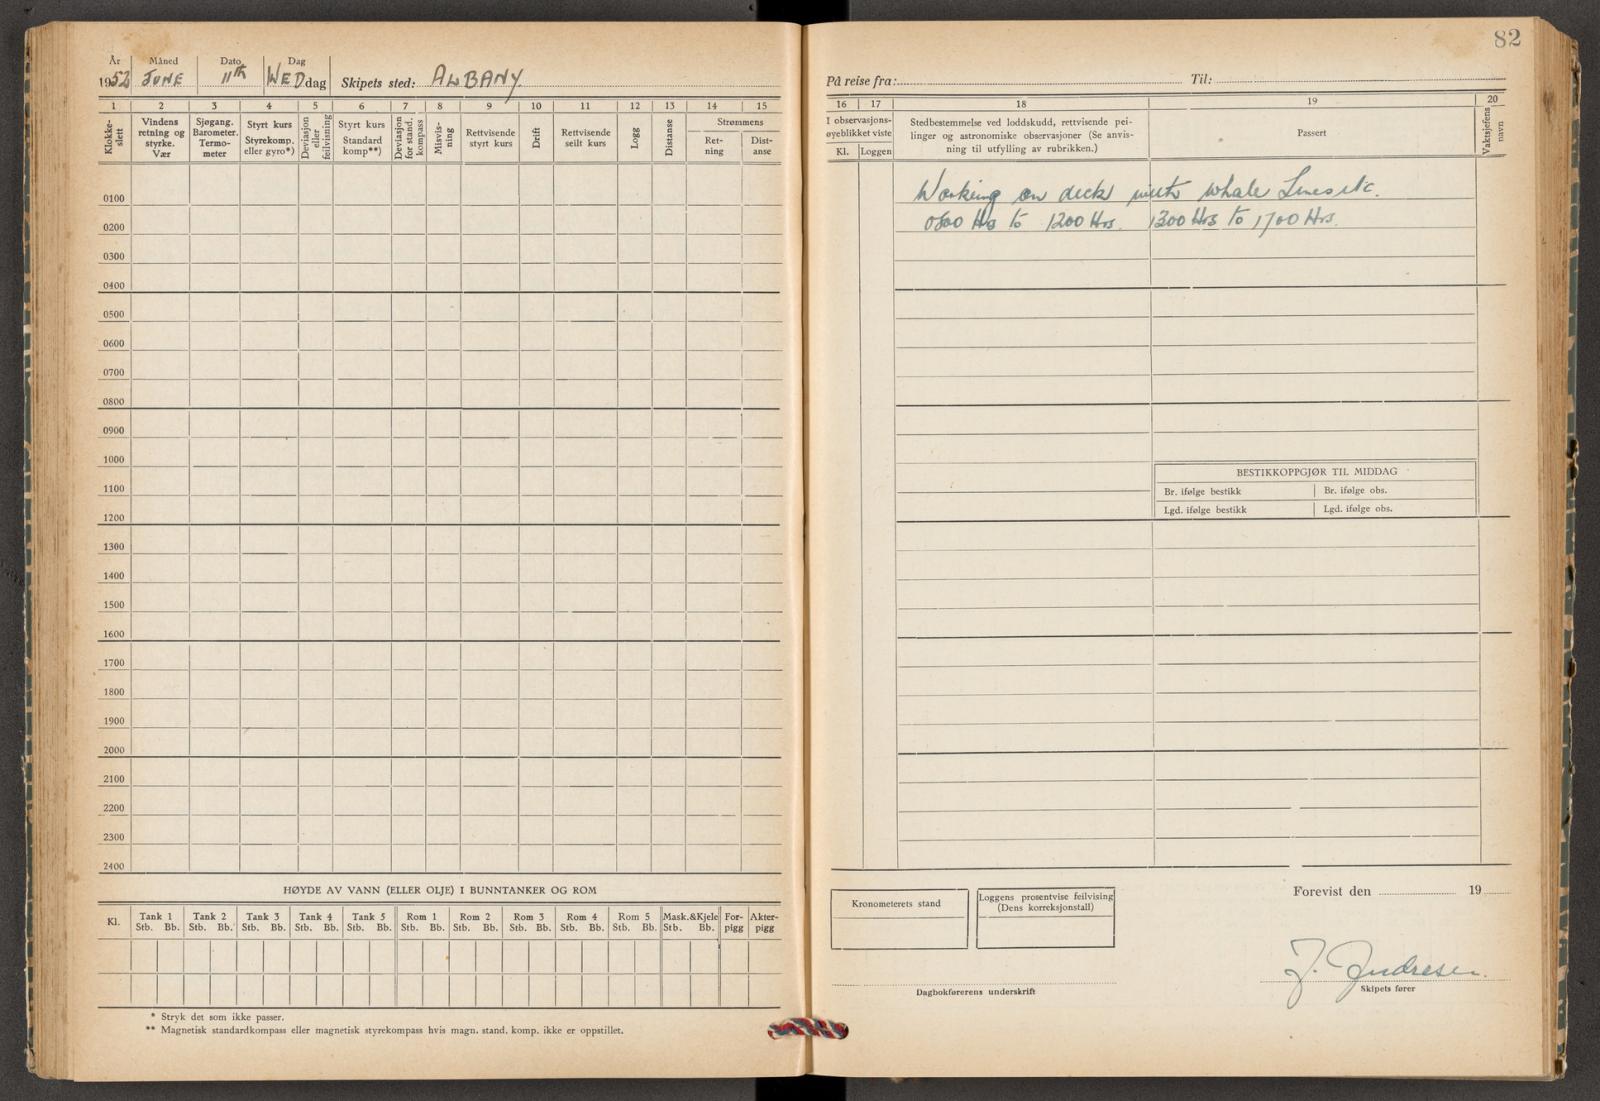 82
År Måned Dato Dag
1952 JUNE 11th WEDdag Skipets sted: ALBANY.
1 2 3 4 5 6 7 8 9 10 11 12 13 14 15
Klokke-slett
Vindens retning og styrke. Vær
Sjøgang. Barometer. Termo-meter
Styrt kurs Styrekomp. eller gyro*)
Deviasjon eller feilvisning
Styrt kurs Standard komp**)
Deviasjon for stand. kompass
Misvis-ning
Rettvisende styrt kurs
Drift
Rettvisende seilt kurs
Logg
Distanse
Strømmens
Ret-ning
Dist-anse
0100
0200
0300
0400
0500
0600
0700
0800
0900
1000
1100
1200
1300
1400
1500
1600
1700
1800
1900
2000
2100
2200
2300
2400
HØYDE AV VANN (ELLER OLJE) I BUNNTANKER OG ROM
Kl. Tank 1 Tank 2 Tank 3 Tank 4 Tank 5 Rom 1 Rom 2 Rom 3 Rom 4 Rom 5 Mask.&Kjele For-pigg Akter-pigg
Stb. Bb. Stb. Bb. Stb. Bb. Stb. Bb. Stb. Bb. Stb. Bb. Stb. Bb. Stb. Bb. Stb. Bb. Stb. Bb. Stb. Bb.
* Stryk det som ikke passer.
** Magnetisk standardkompass eller magnetisk styrekompass hvis magn. stand. komp. ikke er oppstillet.
På reise fra: Til:
16 17 18 19 20
I observasjons-øyeblikket viste
Kl. Loggen
Stedbestemmelse ved loddskudd, rettvisende pei-
linger og astronomiske observasjoner (Se anvis-
ning til utfylling av rubrikken.)
Passert
Vaktsjefens navn
Working on deck with whale Lines etc.
0800 Hrs to 1200 Hrs. 1300 Hrs to 1700 Hrs.
BESTIKKOPPGJØR TIL MIDDAG
Br. ifølge bestikk Br. ifølge obs.
Lgd. ifølge bestikk Lgd. ifølge obs.
Kronometerets stand
Loggens prosentvise feilvising
(Dens korreksjonstall)
Forevist den 19
J. Andresen.
Dagbokførerens underskrift
Skipets fører